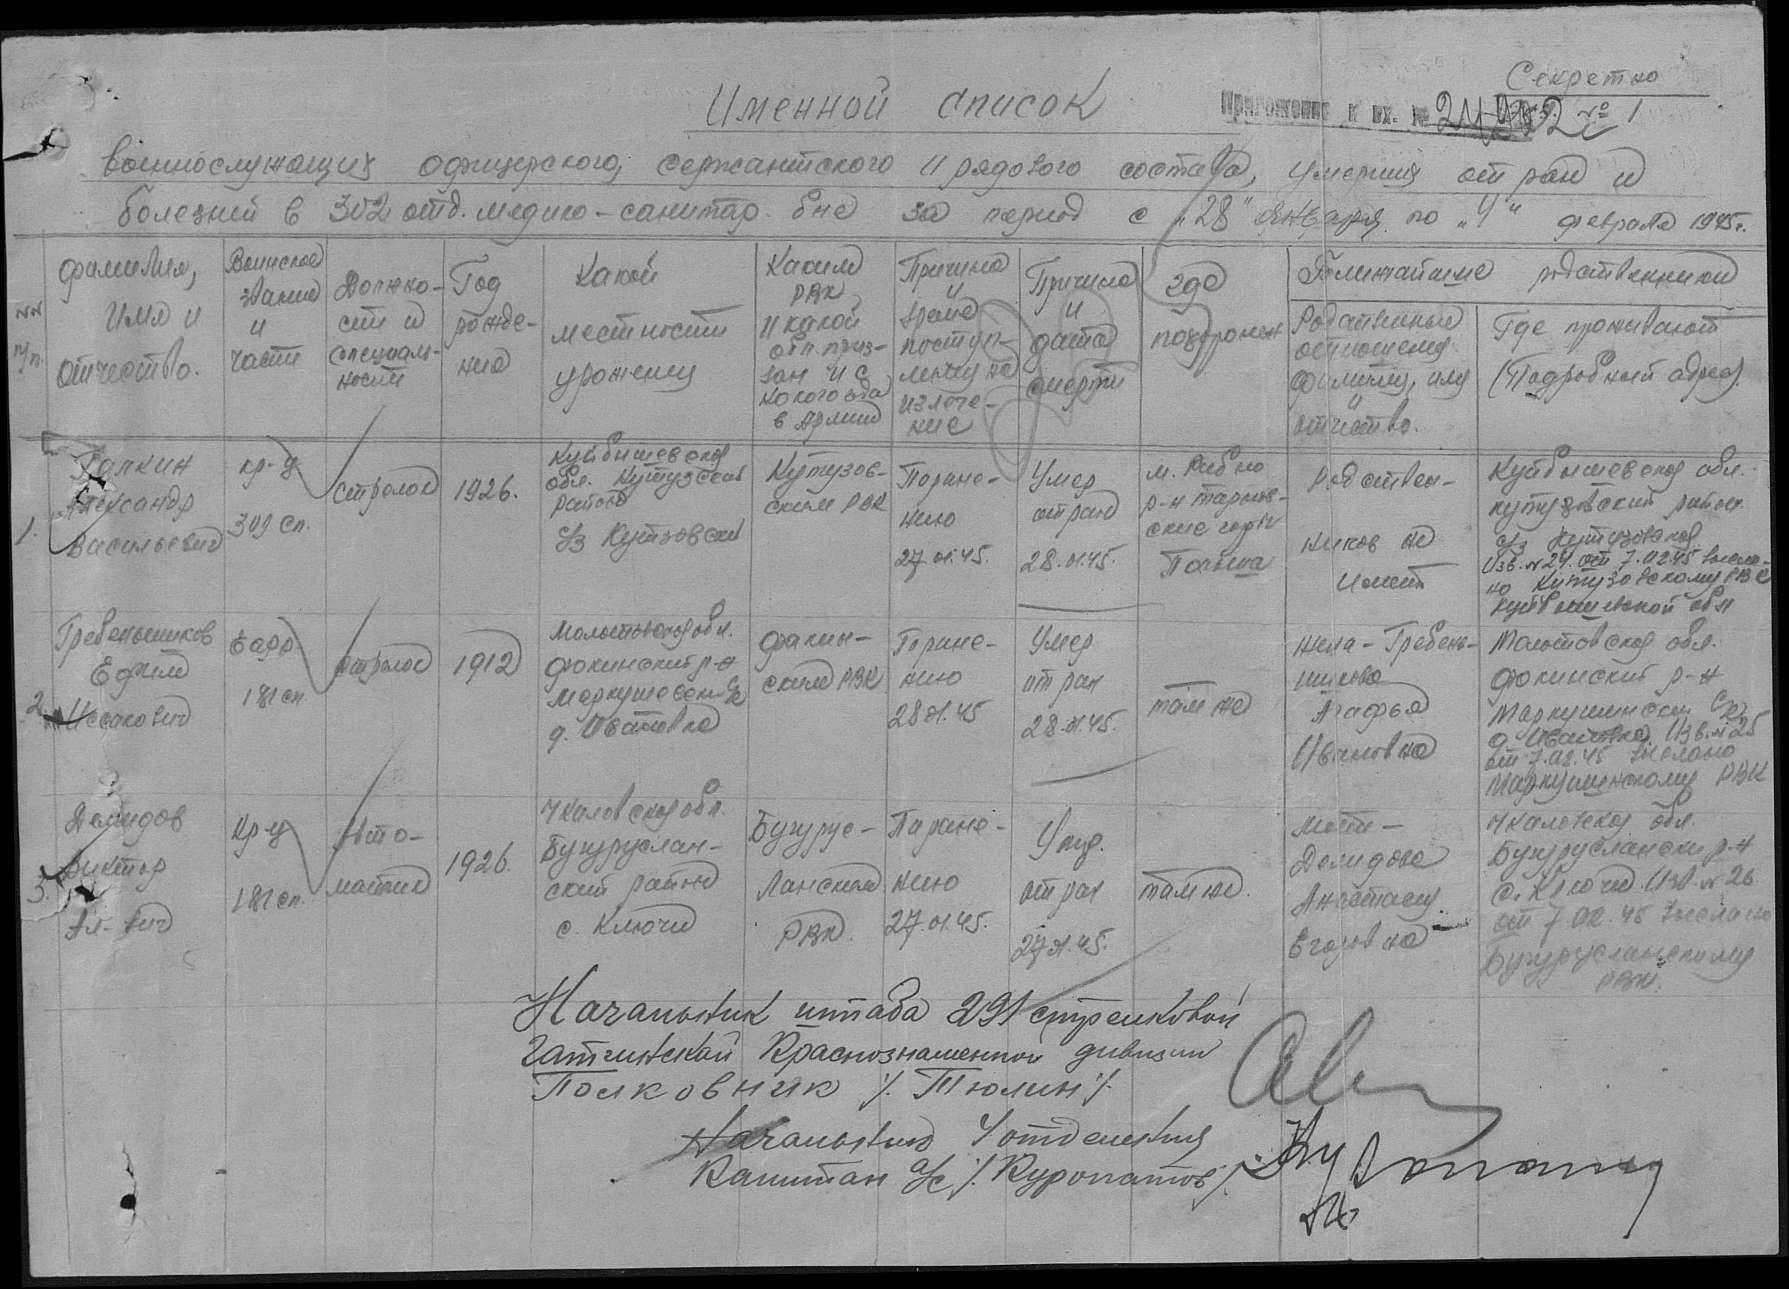 Секретно
Именной список
Приложение к вх. № №1
военнослужащих офицерского, сержантского и рядового состава, умерших от ран и
болезней в 302 отд. медико-санитар. б-не за период с "28" января по "4" февраля 1945г.
NN
п/п.
Фамилия,
Имя и
отчество.
Воинское
звание
и
часть
Должно-
сть и
специаль-
ность
Год
рожде-
ния
Какой
местности
уроженец
Каким
РВК
и какой
обл. приз-
ван и с
какого года
в Армии
Причина
и
время
поступ-
ления на
излече-
ние
Причина
и
дата
смерти
Где
похоронен
Ближайшие родственники
Родственные
отношения
фамилия, имя
и
отчество.
Где проживают
(Подробный адрес)
1.
Галкин
Александр
Васильевич
кр-ц
309 сп.
стрелок
1926.
Куйбышевская
обл. Кутузовский
район
с/з Кутузовский
Кутузов-
ским РВК
Поране-
нию
27.01.45.
Умер
от ран
28.01.45.
м. Рабно
р-н Тарнов-
ские горы
Польша
Родствен-
ников не
имеет
Куйбышевская обл.
кутузовский район
с/з Кутузовский
Изв. №24 от 7.02.45 высла-
но Кутузовскому РВК
Куйбышевской обл
2.
Гребенщиков
Ефим
Иссакович
Ефр
181 сп.
стрелок
1912
Молотовская обл.
Фокинский р-н
Маркушевский с/с
д. Ивановка
Фокин-
ским РВК
Поране-
нию
28.01.45
Умер
от ран
28.01.45.
там же
Жена - Гребен-
щикова
Агафья
Ивановна
Молотовская обл.
Фокинский р-н
Маркушинский с/с
д. Ивановка Изв. №25
от 7.02.45 выслано
Маркушинскому РВК
3.
Демидов
Виктор
Ал-вич
Кр-ц
181 сп.
авто-
матчик
1926.
Чкаловская обл.
Бугуруслан-
ский район
с. Ключи
Бугурус-
ланским
РВК
Поране-
нию
27.01.45.
Умер.
от ран
27.01.45.
там же.
Мать -
Демидова
Анастасия
Егоровна
Чкаловская обл.
Бугурусланский р-н
с. Ключи Изв. №26
от 7.02.45 выслано
Бугурусланскому
РВК.
Начальник штаба 291 стрелковой
Гатчинской Краснознаменной дивизии
Полковник /. Тюлин ./
Начальник 4 отделения
Капитан а/с /. Куропатов ./